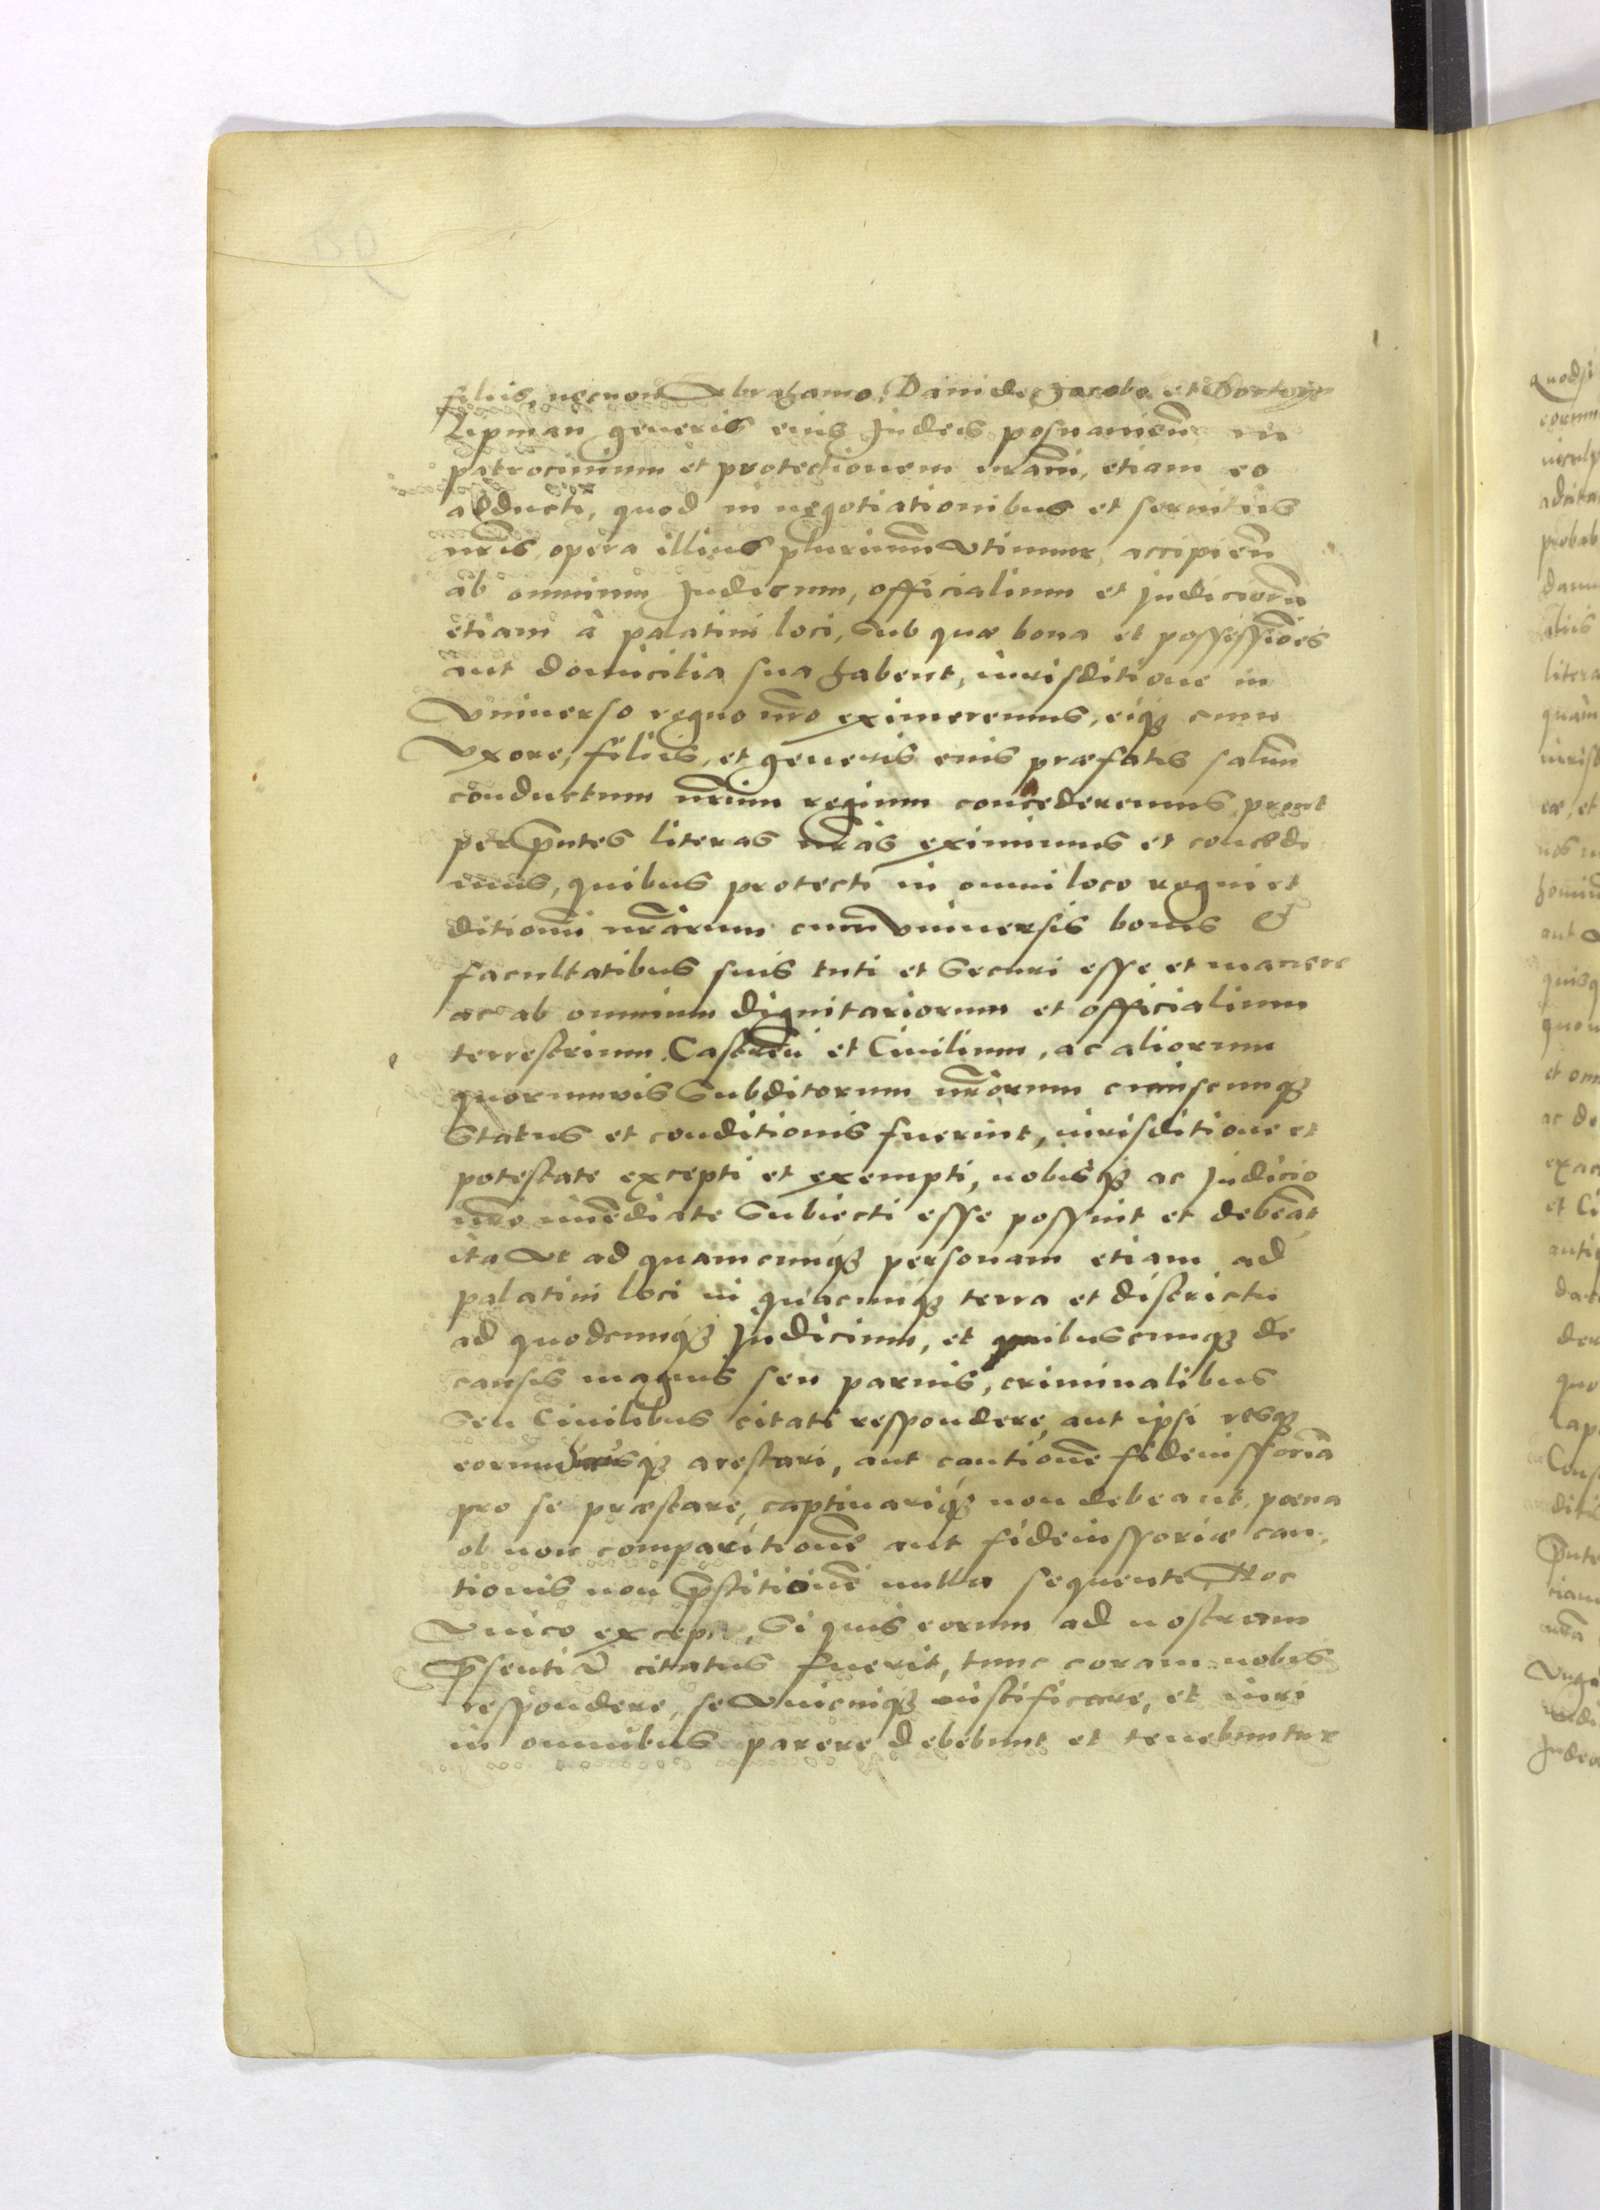 filiis, necnon Abrahamo, Dauide, Jacobo et
Lipman generis eius Judeis posnanien̄ in
patrocinium et protectionem nrām, etiam eo
adducti, quod in negotiationibus et seruitiis
nrīs opera illius plurimum Vtimur, accipien̄
ab omnium Judicum, officialium et judiciorū
etiam à palatini loci, sub quæ bona et possessiōes
aut domicilia sua habent, iurisditione in
Vniuerso regno nrō eximeremus, eiq3 cum
Vxore, filiis, et generis eius præfatis saluū
conductum nrūm regium concederemus, prout
per p̄ntes literas nrās eximimus et concedi
mus, quibus protecti in omni loco regni et
ditionū nrārum cum Vniuersis bonis &
facultatibus suis tuti et securi esse et manere
ac ab omnium dignitariorum et officialium
terrestrium, Castren̄ et Ciuilium, ac aliorum
quorumuis Subditorum nrōrum cuiuscunq3
status et conditionis fuerint, iurisditione et
potestate excepti et exempti, nobisq3 ac judicio
nrō im̄ediate Subiecti esse possint et debeāt,
ita Vt ad quamcunq3 personam etiam ad
palatini loci in quacunq3 terra et districtu
ad quodcunq3 Judicium, et quibuscunq3 de
causis magnis seu paruis, criminalibus
seu Ciuilibus citati respondere, aut ipsi resq3
eorum q3 arestari, aut cautionē fideiussoriā
pro se præstare, captiuariq3 non debeant, pœna
ob non comparitionē aut fideiussoriæ cau,
tionis non p̄stitionē nulla sequente, Hoc
Vnico excepto, Si quis eorum ad nostram
p̄sentiā citatus fuerit, tunc coram nobis
respondere, se Vnicuiq3 iustificare, et iuri
in omnibus parere debebunt et tenebuntur